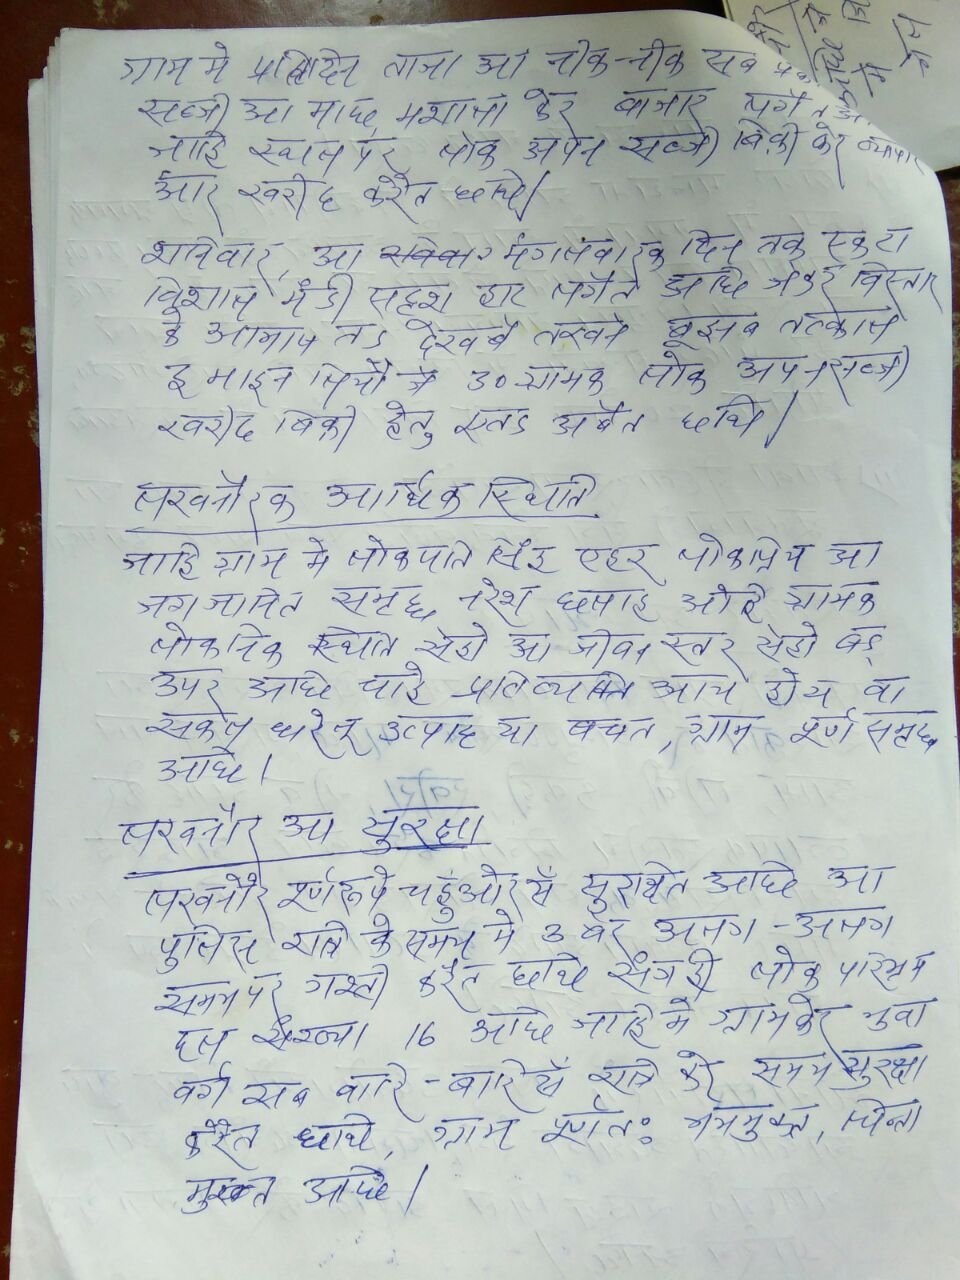 ग्राम मे प्रतिदिन ताजा आ नीक-नीक सब
सब्जी आ माछ, मशाला केर बाजार लगैत अ
जाहि स्थल पर लोक अपन सब्जी बिक्री केर व्यापार
आर खरीद करैत छथि।
शनिवार, आ मंगलवारक दिन तक एकटा
विशाल मंडी सदृश हाट लगैत अछि जेकर विस्तार
के आभास तऽ देखबै तखने बूझब तत्काल
इ माइन लियौ जे 30 ग्रामक लोक अपन सब्जी
खरीद बिक्री हेतु एतऽ अबैत छथि।
लखनौरक आर्थिक स्थिति
जाहि ग्राम मे लोकपति सिंह एहर लोकप्रिय आ
जगजानित समृद्ध नरेश छलाह ओहि ग्रामक
लोकनिक स्थिति सेहो आ जीवन स्तर सेहो बड़
उपर अछि चाहे प्रतिव्यक्ति आय होय वा
सकल घरेलू उत्पाद या बचत, ग्राम पूर्ण समृद्ध
अछि।
लखनौर आ सुरक्षा
लखनौर पूर्णरूपे चहुंओर सँ सुरक्षित अछि आ
पुलिस रात्रि के समय मे 3 बेर अलग-अलग
समय पर गश्ती करैत छथि संगही लोक
दल संख्या 16 अछि जाहि मे ग्राम केर युवा
वर्ग सब बारि-बारि सँ रात्रि केर समय सुरक्षा
करैत छथि, ग्राम पूर्णतः भयमुक्त, चिन्ता
मुक्त अछि।